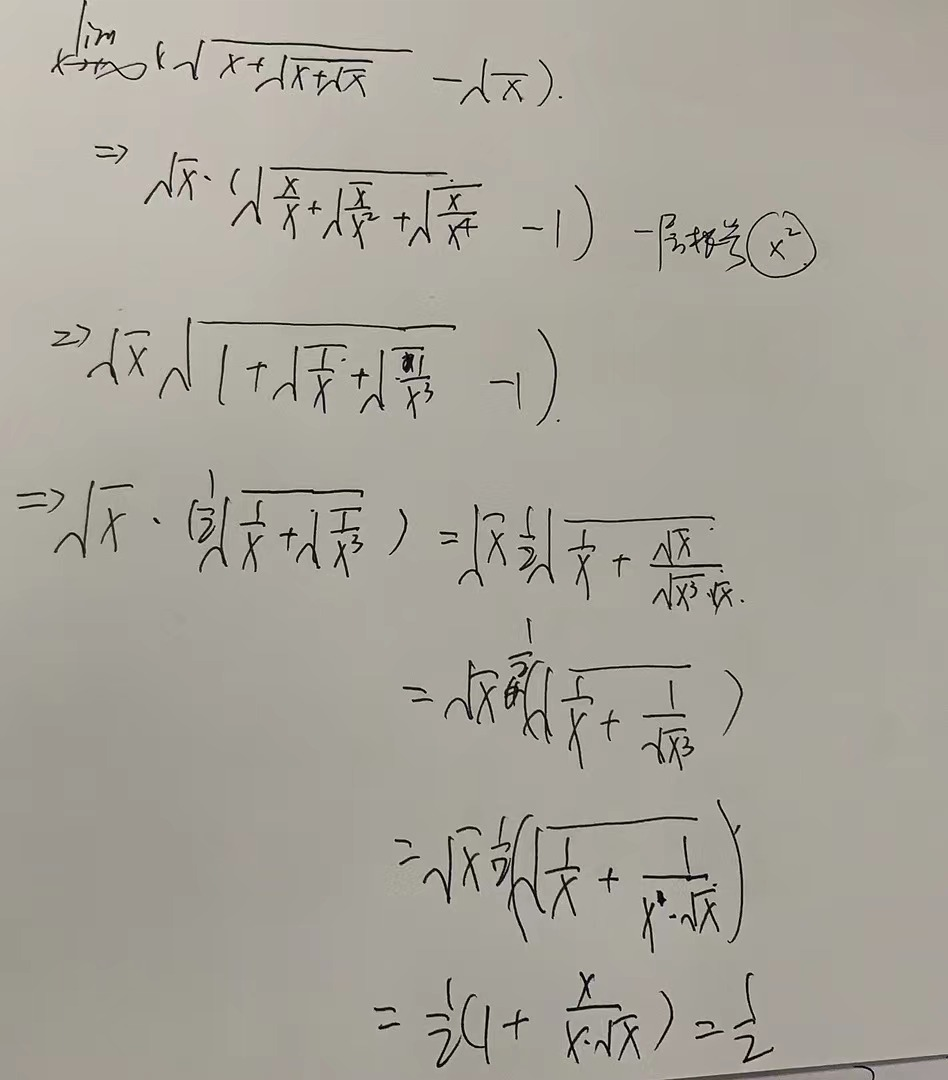 lim x→+∞ (√(x+√(x+√x)) - √x).
=> √x · (√(x/x + √(x/x² + √(x/x⁴))) - 1) 一层根号 x²
=> √x √(1 + √(1/x + √(1/x³))) - 1).
=> √x · (1/2 √(1/x + √(1/x³))) = √x 1/2 √(1/x + √x/(√x³·√x))
= √x 1/2 (√(1/x + 1/√x³))
= √x 1/2 (√(1/x + 1/(x·√x)))
= 1/2 (1 + x/(x·√x)) = 1/2